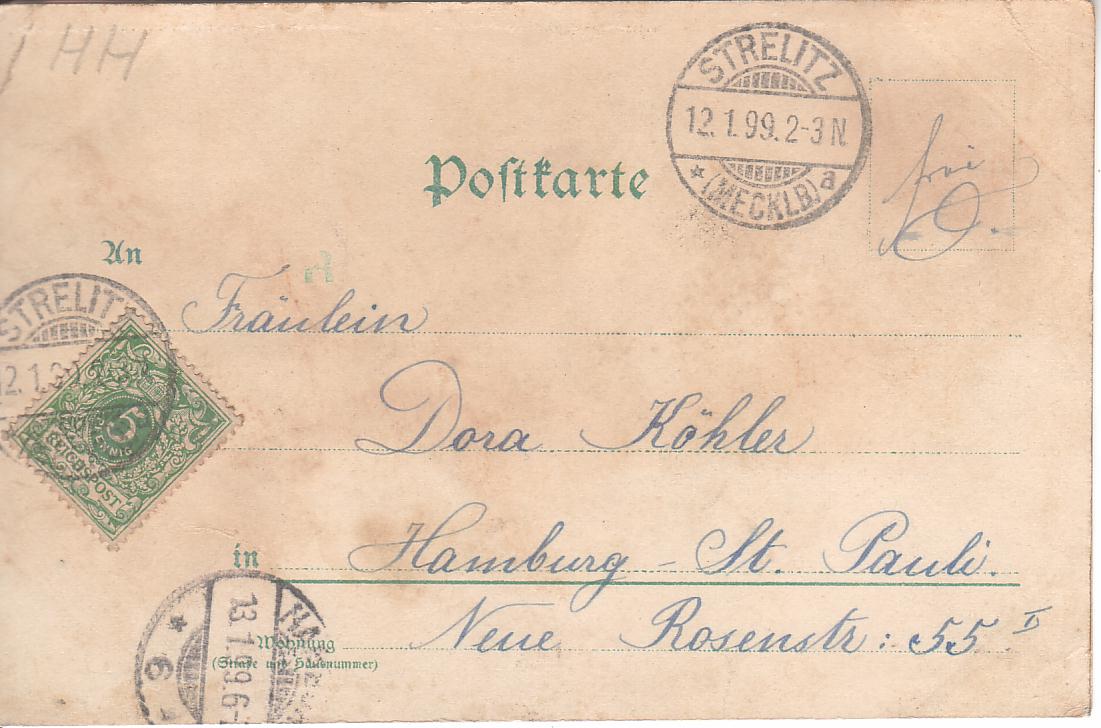 HH
STRELITZ
12.1.99.2-3N
* (MECKLB) a
Postkarte
frei
An
Fräulein
STRELITZ
12.1.9
5
PFENNIG
REICHSPOST
Dora Köhler
in Hamburg - St. Pauli.
Wohnung
(Straße und Hausnummer)
Neue Rosenstr: 55 I
13.1.99.6-
* 6